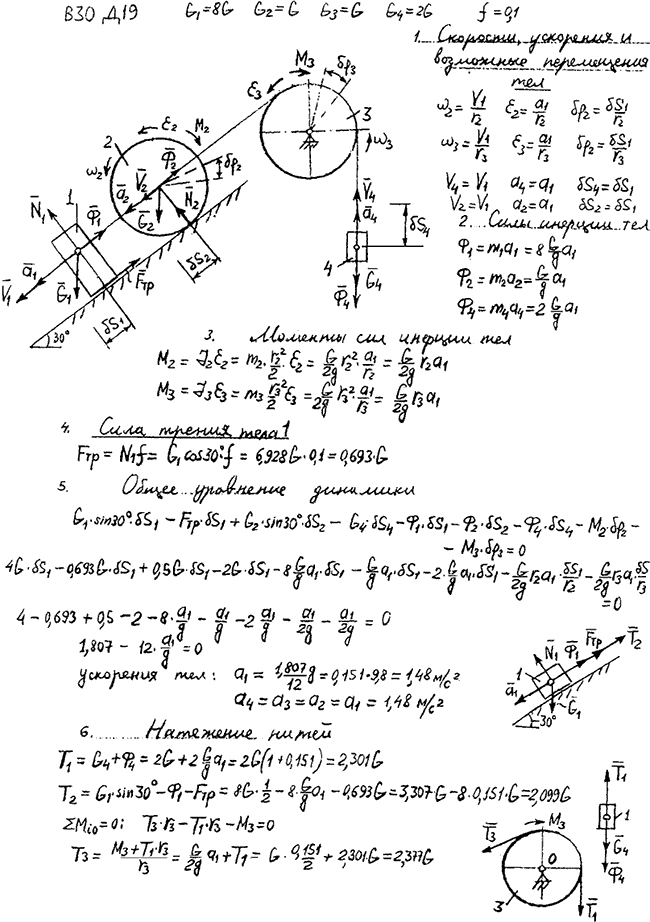 ВЗО Д19 G₁=8G G₂=G G₃=G G₄=2G f=0,1
1. Скорости, ускорения и
возможные перемещения
тел
ω₂=V₁/r₂ ε₂=a₁/r₂ δφ₂=δS₁/r₂
ω₃=V₁/r₃ ε₃=a₁/r₃ δφ₂=δS₁/r₃
V₄=V₁ a₄=a₁ δS₄=δS₁
V₂=V₁ a₂=a₁ δS₂=δS₁
2... Силы инерции тел
Φ₁=m₁a₁=8 G/g a₁
Φ₂=m₂a₂=G/g a₁
Φ₄=m₄a₄=2 G/g a₁
M₃ δφ₃
ε₃ 3
ω₃
ε₂ M₂
2 Φ̄₂ δφ₂
ω₂ V̄₂ ā₂ N̄₂
Ḡ₂
N̄₁ 1 Φ̄₁
ā₁ V̄₁ Ḡ₁ F̄тр
δS₂
δS₁
30°
V̄₄
ā₄
δS₄
4 Ḡ₄
Φ̄₄
3. Моменты сил инерции тел
M₂ = J₂ε₂ = m₂·r₂²/2·ε₂ = G/2g r₂²·a₁/r₂ = G/2g r₂a₁
M₃ = J₃ε₃ = m₃ r₃²/2 ε₃ = G/2g r₃²·a₁/r₃ = G/2g r₃a₁
4. Сила трения тела 1
Fтр = N₁f = G₁cos30°·f = 6,928G·0,1 = 0,693·G
5. Общее...уравнение динамики
G₁·sin30°·δS₁ − Fтр·δS₁ + G₂·sin30°·δS₂ − G₄·δS₄ − Φ₁·δS₁ − Φ₂·δS₂ − Φ₄·δS₄ − M₂·δφ₂ −
− M₃·δφ₃ = 0
4G·δS₁ − 0,693G·δS₁ + 0,5G·δS₁ − 2G·δS₁ − 8 G/g a₁·δS₁ − G/g a₁·δS₁ − 2·G/g a₁·δS₁ − G/2g r₂a₁·δS₁/r₂ − G/2g r₃a₁·δS/r₃
= 0
4 − 0,693 + 0,5 − 2 − 8·a₁/g − a₁/g − 2 a₁/g − a₁/2g − a₁/2g = 0
1,807 − 12·a₁/g = 0
ускорения тел: a₁ = 1,807/12 g = 0,151·9,8 = 1,48 м/с²
a₄ = a₃ = a₂ = a₁ = 1,48 м/с²
N̄₁ Φ̄₁ F̄тр T̄₂
1
ā₁ Ḡ₁
30°
6.......... Натяжение нитей
T₁ = G₄ + Φ₄ = 2G + 2 G/g a₁ = 2G(1 + 0,151) = 2,301G
T₂ = G₁·sin30° − Φ₁ − Fтр = 8G·1/2 − 8·G/g a₁ − 0,693G = 3,307G − 8·0,151·G = 2,099G
ΣMᵢ₀ = 0; T₃·r₃ − T₁·r₃ − M₃ = 0
T₃ = (M₃ + T₁·r₃)/r₃ = G/2g a₁ + T₁ = G·0,151/2 + 2,301G = 2,377G
T̄₃ M₃
O
3 T̄₁
T̄₁
1
Ḡ₄
Φ̄₄